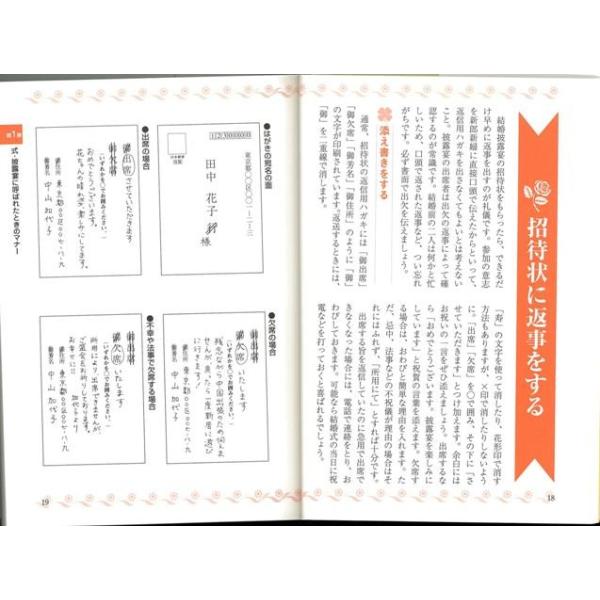 招待状に返事をする
結婚披露宴の招待状をもらったら、できるだ
け早めに返事を出すのが礼儀です。参加の意志
を新郎新婦に直接口頭で伝えたからといって、
返信用ハガキを出さなくてもよいとは考えない
こと。披露宴の出席者は出欠の返事によって確
認するのが常識です。結婚前の二人は何かと忙
しいため、口頭で返された返事など、つい忘れ
がちです。必ず書面で出欠を伝えましょう。
添え書きをする
通常、招待状の返信用ハガキには「御出席」
「御欠席」「御芳名」「御住所」のように「御」
の文字が印刷されています。返送するときには、
「御」を二重線で消します。
「寿」の文字を使って消したり、花形印で消す
方法もありますが、×印で消したりしないよう
に。「出席」「欠席」を○で囲み、その下に「さ
せていただきます」とつけ加えます。余白には
お祝いの一言をぜひ添えましょう。出席するな
ら「おめでとうございます。披露宴を楽しみに
しています」と祝賀の言葉を添えます。欠席す
る場合は、おわびと簡単な理由を入れます。た
だ、忌中、法事などの不祝儀が理由の場合はそ
れにはふれず、「所用にて」とすれば十分です。
出席する旨を返信していたのに急用で出席で
きなくなった場合には、電話で連絡をとり、お
わびしておきます。可能なら結婚式の当日に祝
電などを打っておくと喜ばれるでしょう。
18
第1章
式・披露宴に呼ばれたときのマナー
●はがきの宛名の面
東京都○区○○一-二-三
田中 花子 行 様
●出席の場合
御出席させていただきます
御欠席
(いずれかを○でお囲みください。)
おめでとうございます。
花ちゃんの晴れ姿 楽しみにしてます。
御住所 東京都○○区○○七-八-九
御芳名 中山 加代子
●欠席の場合
御出席
御欠席いたします
(いずれかを○でお囲みください。)
残念ながら中国出張のため伺えま
せんが、戻ったら一度新居に遊び
に行きます。
御住所 東京都○○区○○七-八-九
御芳名 中山 加代子
●不幸や法事で欠席する場合
御出席
御欠席いたします
(いずれかを○でお囲みください。)
所用により出席できませんが
ご盛会をお祈りしております。
お幸せに!! 加代子より
御住所 東京都○○区○○七-八-九
御芳名 中山 加代子
19